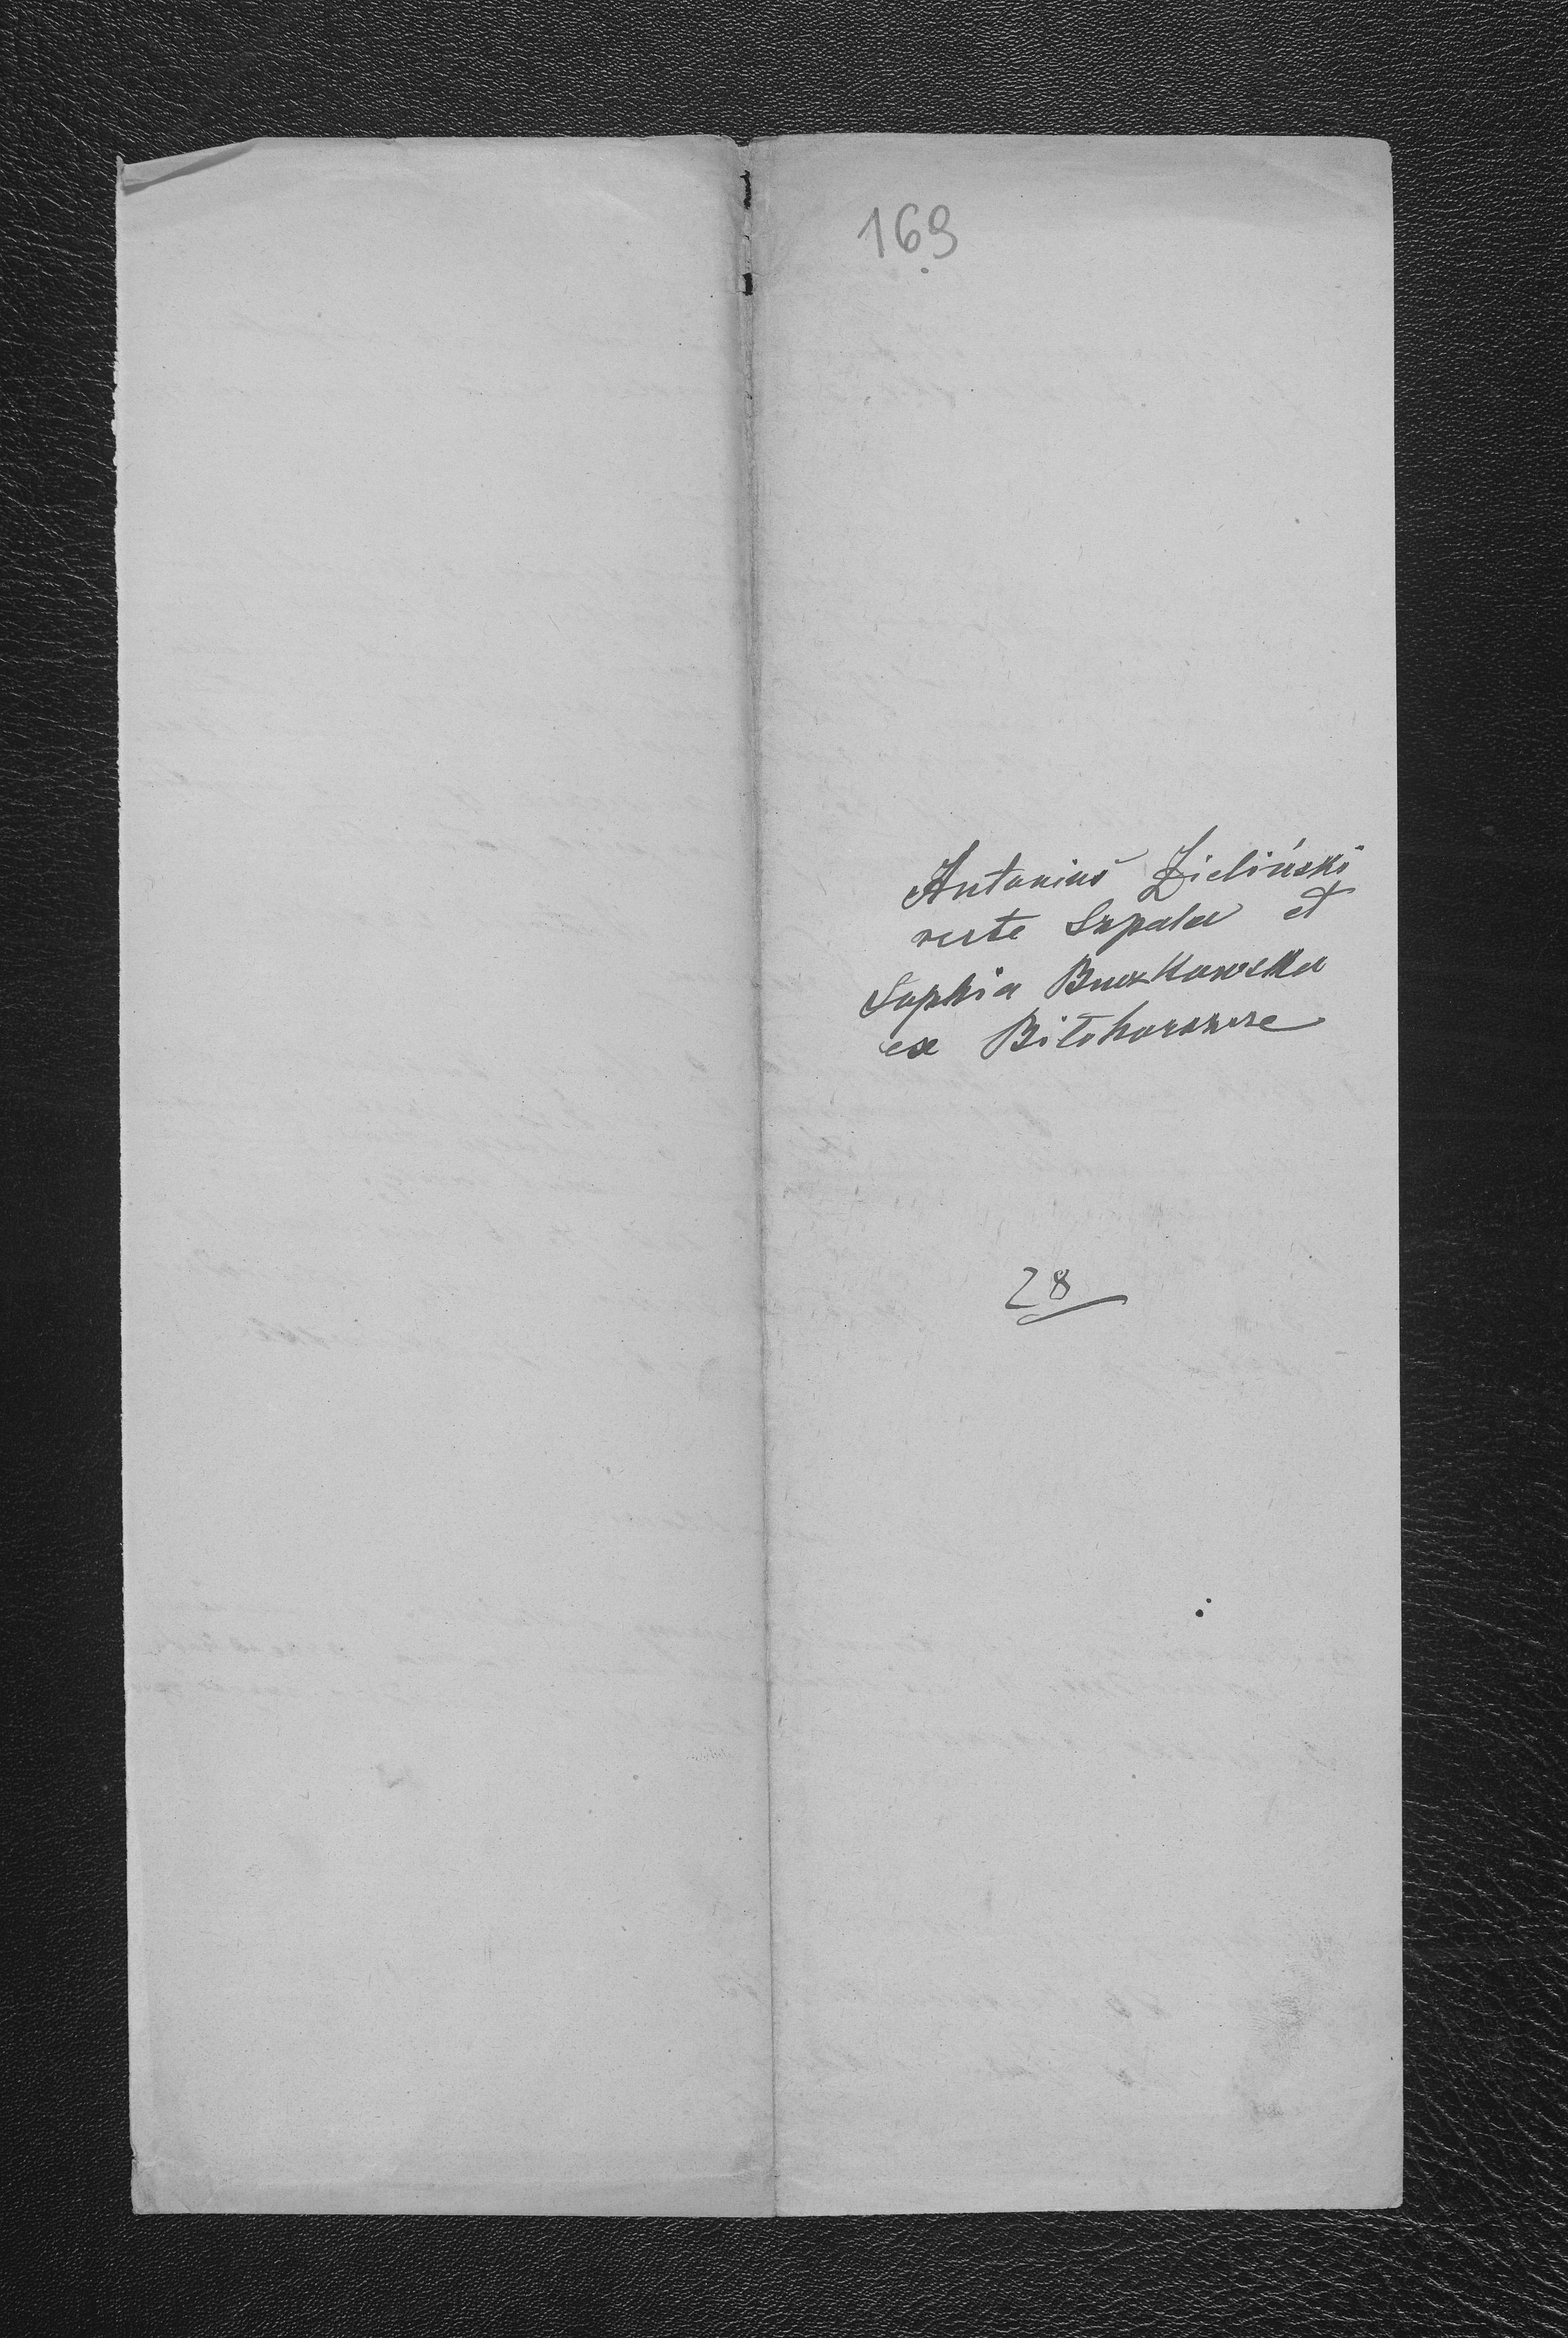 169
Antonius Zieliński
recte Szpala et
Sophia Buczkowska
ex Biłohorszcze
28